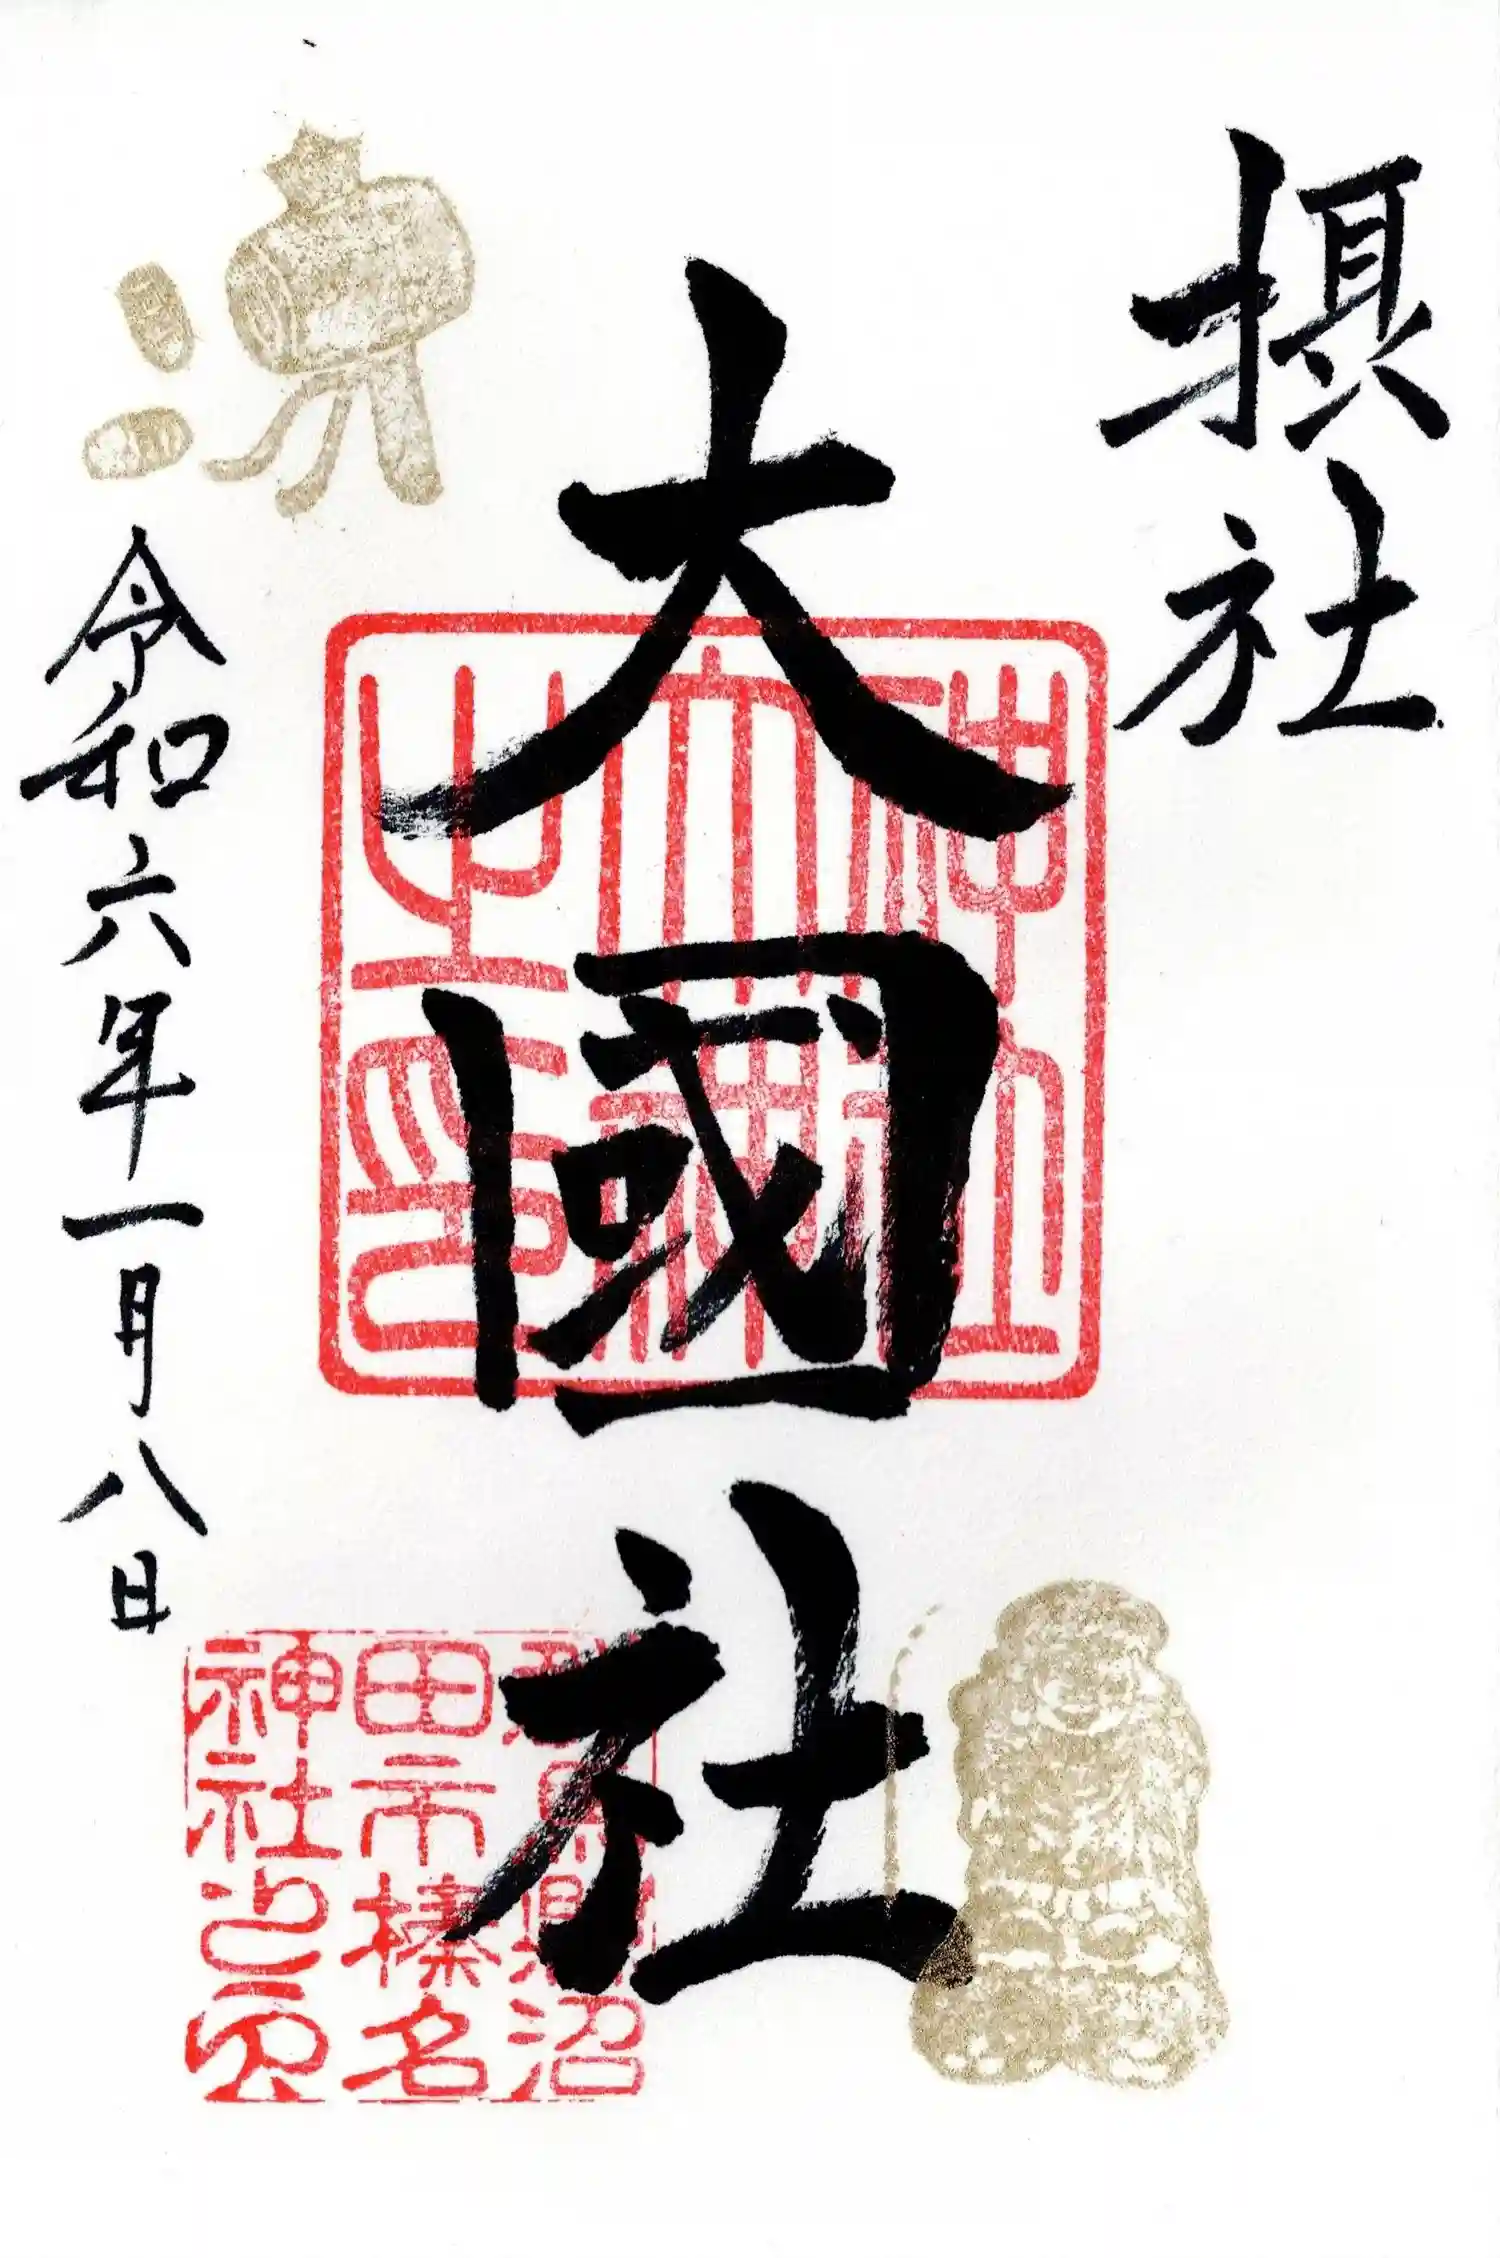 摂社
大國社
令和六年一月八日
沼
田市榛名
神社之印